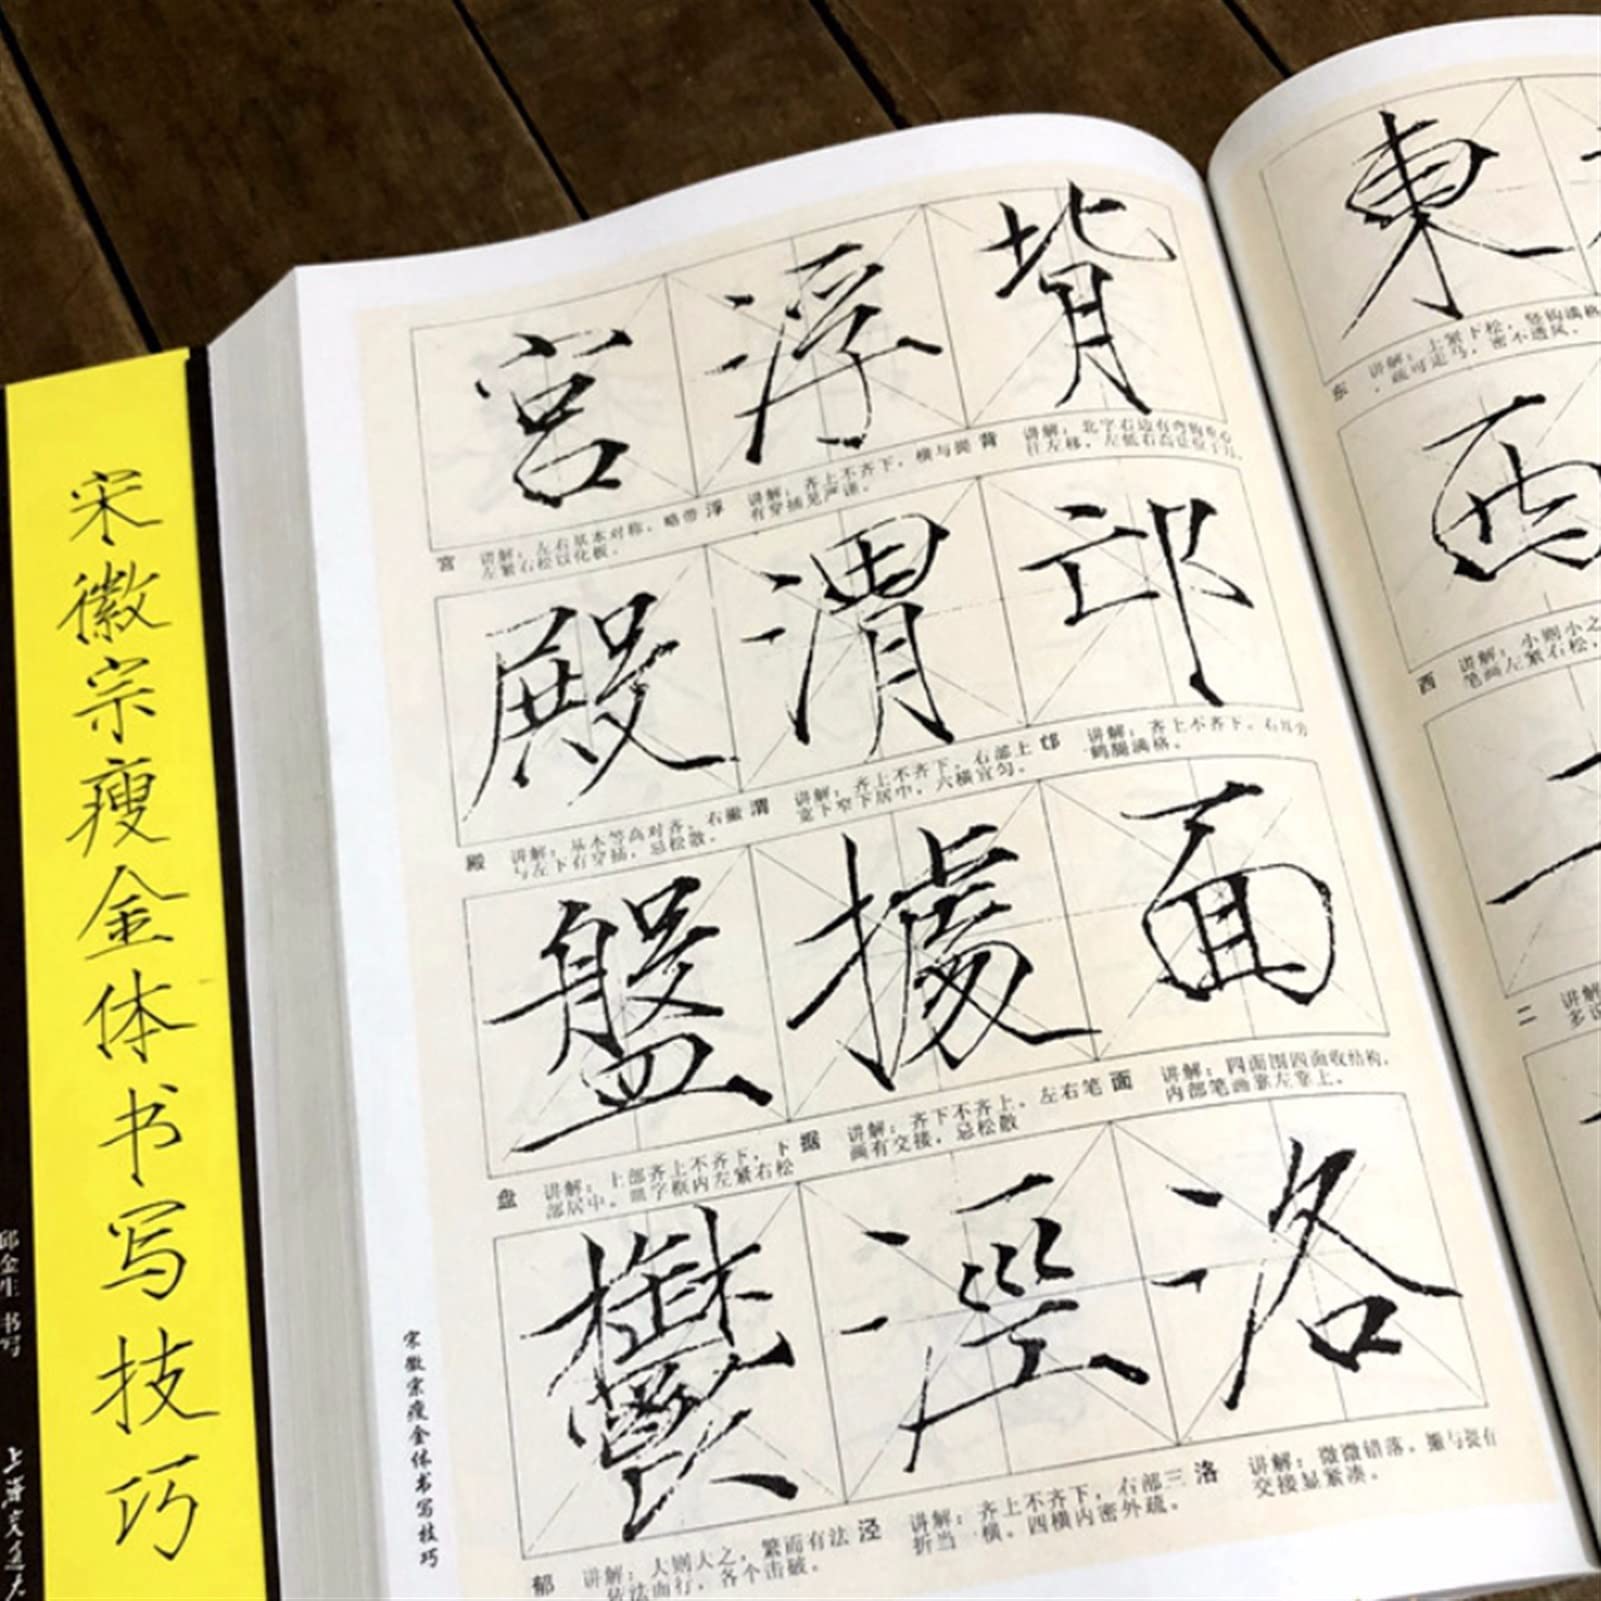 宋徽宗瘦金体书写技巧
邱金生 书写
宋徽宗瘦金体书写技巧
宫 浮 背
宫 讲解：左右基本对称，略带
左紧右松以化板。
浮 讲解：齐上不齐下，横与提
有穿插见严谨。
背 讲解：北字右边有弯钩重心
殿 渭 邙
殿 讲解：基本等高对齐，右撇
与左下有穿插，忌松散。
渭 讲解：齐上不齐下，右部上
宽下窄下居中，六横宜匀。
邙 讲解：齐上不齐下。右耳旁
鹤腿满格。
盤 據 面
盘 讲解：上部齐上不齐下，下
部居中。皿字框内左紧右松
据 讲解：齐下不齐上。左右笔
画有交接，忌松散
面 讲解：四面围四面收结构，
内部笔画靠左靠上。
鬱 涇 洛
郁 讲解：大则大之，繁而有法
依法而行，各个击破。
泾 讲解：齐上不齐下，右部三
折当一横。四横内密外疏。
洛 讲解：微微错落。撇与提有
交接显紧凑。
東
东 讲解：上紧下松，竖钩满格
，疏可走马，密不透风。
西
西 讲解：小则小之
笔画左紧右松，
二 讲解